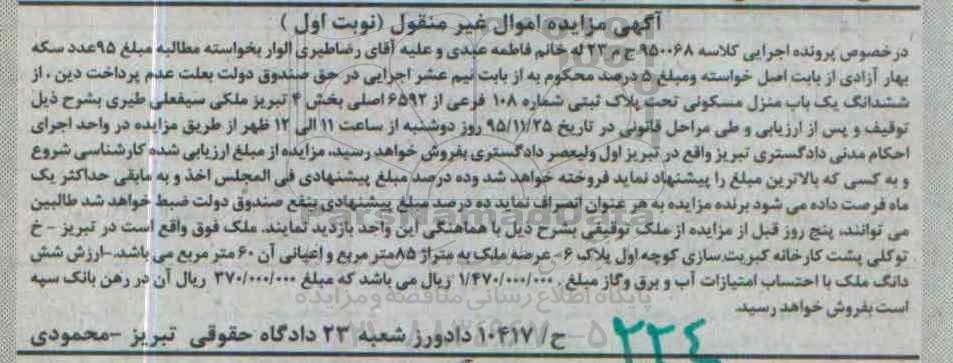 آگهی مزایده اموال غیر منقول (نوبت اول )
در خصوص پرونده اجرایی کلاسه ۹۵۰۰۶۸ ج م ۲۳ له خانم فاطمه عبدی و علیه آقای رضاطیری الوار بخواسته مطالبه مبلغ ۹۵عدد سکه
بهار آزادی از بابت اصل خواسته ومبلغ ۵ درصد محکوم به از بابت نیم عشر اجرایی در حق صندوق دولت بعلت عدم پرداخت دین ، از
ششدانگ یک باب منزل مسکونی تحت پلاک ثبتی شماره ۱۰۸ فرعی از ۶۵۹۲ اصلی بخش ۴ تبریز ملکی سیفعلی طیری بشرح ذیل
توقیف و پس از ارزیابی و طی مراحل قانونی در تاریخ ۹۵/۱۱/۲۵ روز دوشنبه از ساعت ۱۱ الی ۱۲ ظهر از طریق مزایده در واحد اجرای
احکام مدنی دادگستری تبریز واقع در تبریز اول ولیعصر دادگستری بفروش خواهد رسید، مزایده از مبلغ ارزیابی شده کارشناسی شروع
و به کسی که بالاترین مبلغ را پیشنهاد نماید فروخته خواهد شد وده درصد مبلغ پیشنهادی فی المجلس اخذ و به مابقی حداکثر یک
ماه فرصت داده می شود برنده مزایده به هر عنوان انصراف نماید ده درصد مبلغ پیشنهادی بنفع صندوق دولت ضبط خواهد شد طالبین
می توانند، پنج روز قبل از مزایده از ملک توقیفی بشرح ذیل با هماهنگی این واحد بازدید نمایند. ملک فوق واقع است در تبریز - خ
توکلی پشت کارخانه کبریت سازی کوچه اول پلاک ۶- عرصه ملک به متراژ ۸۵متر مربع و اعیانی آن ۶۰ متر مربع می باشد.-ارزش شش
دانگ ملک با احتساب امتیازات آب و برق وگاز مبلغ . ۱/۴۷۰/۰۰۰/۰۰۰ ریال می باشد که مبلغ ۳۷۰/۰۰۰/۰۰۰ ریال آن در رهن بانک سپه
است بفروش خواهد رسید.
ح/ ۱۰۴۱۷ دادورز شعبه ۲۳ دادگاه حقوقی تبریز -محمودی
۲۲٤
ParsNamadData
پایگاه اطلاع رسانی مناقصه و مزایده